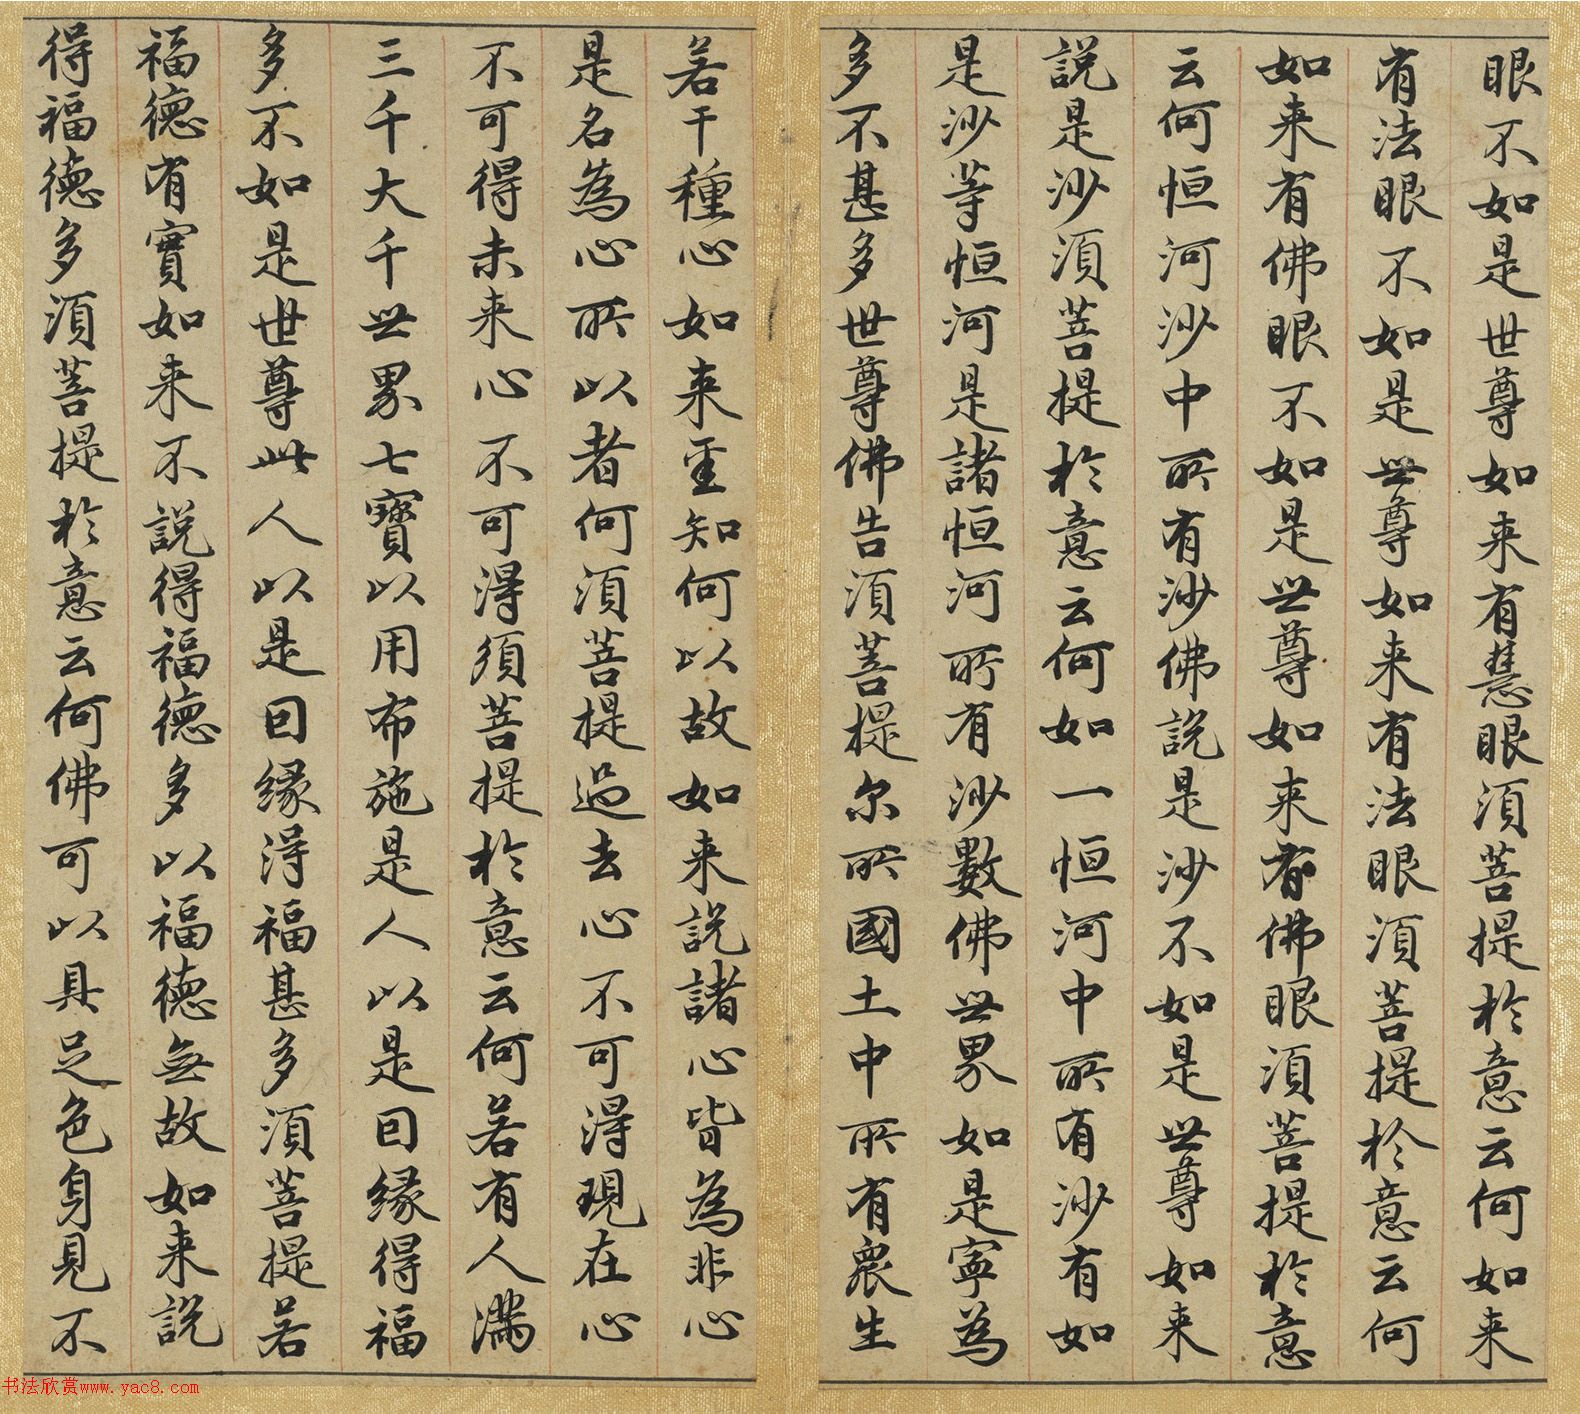 眼不如是世尊如来有慧眼須菩提於意云何如来
有法眼不如是世尊如来有法眼須菩提於意云何
如来有佛眼不如是世尊如来有佛眼須菩提於意
云何恒河沙中所有沙佛説是沙不如是世尊如来
説是沙須菩提於意云何如一恒河中所有沙有如
是沙等恒河是諸恒河所有沙數佛世界如是寧為
多不甚多世尊佛告須菩提尔所國土中所有衆生
若干種心如来悉知何以故如来説諸心皆為非心
是名為心所以者何須菩提過去心不可得現在心
不可得未来心不可得須菩提於意云何若有人滿
三千大千世界七寶以用布施是人以是因緣得福
多不如是世尊此人以是因緣得福甚多須菩提若
福德有實如来不説得福德多以福德無故如来説
得福德多須菩提於意云何佛可以具足色身見不
书法欣赏www.yac8.com